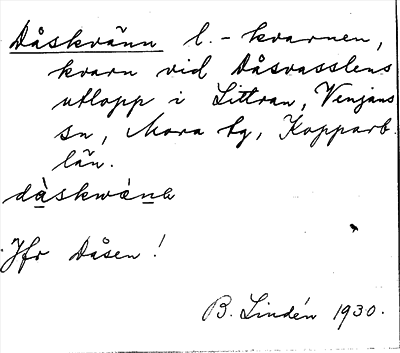 Dåskvänn l. - kvarnen,
kvarn vid Dåsvasslens
utlopp i Littran, Venjans
sn, Mora tg, Kopparb.
län.
dàskwὰna
Jfr Dåsen!
B. Lindén 1930.